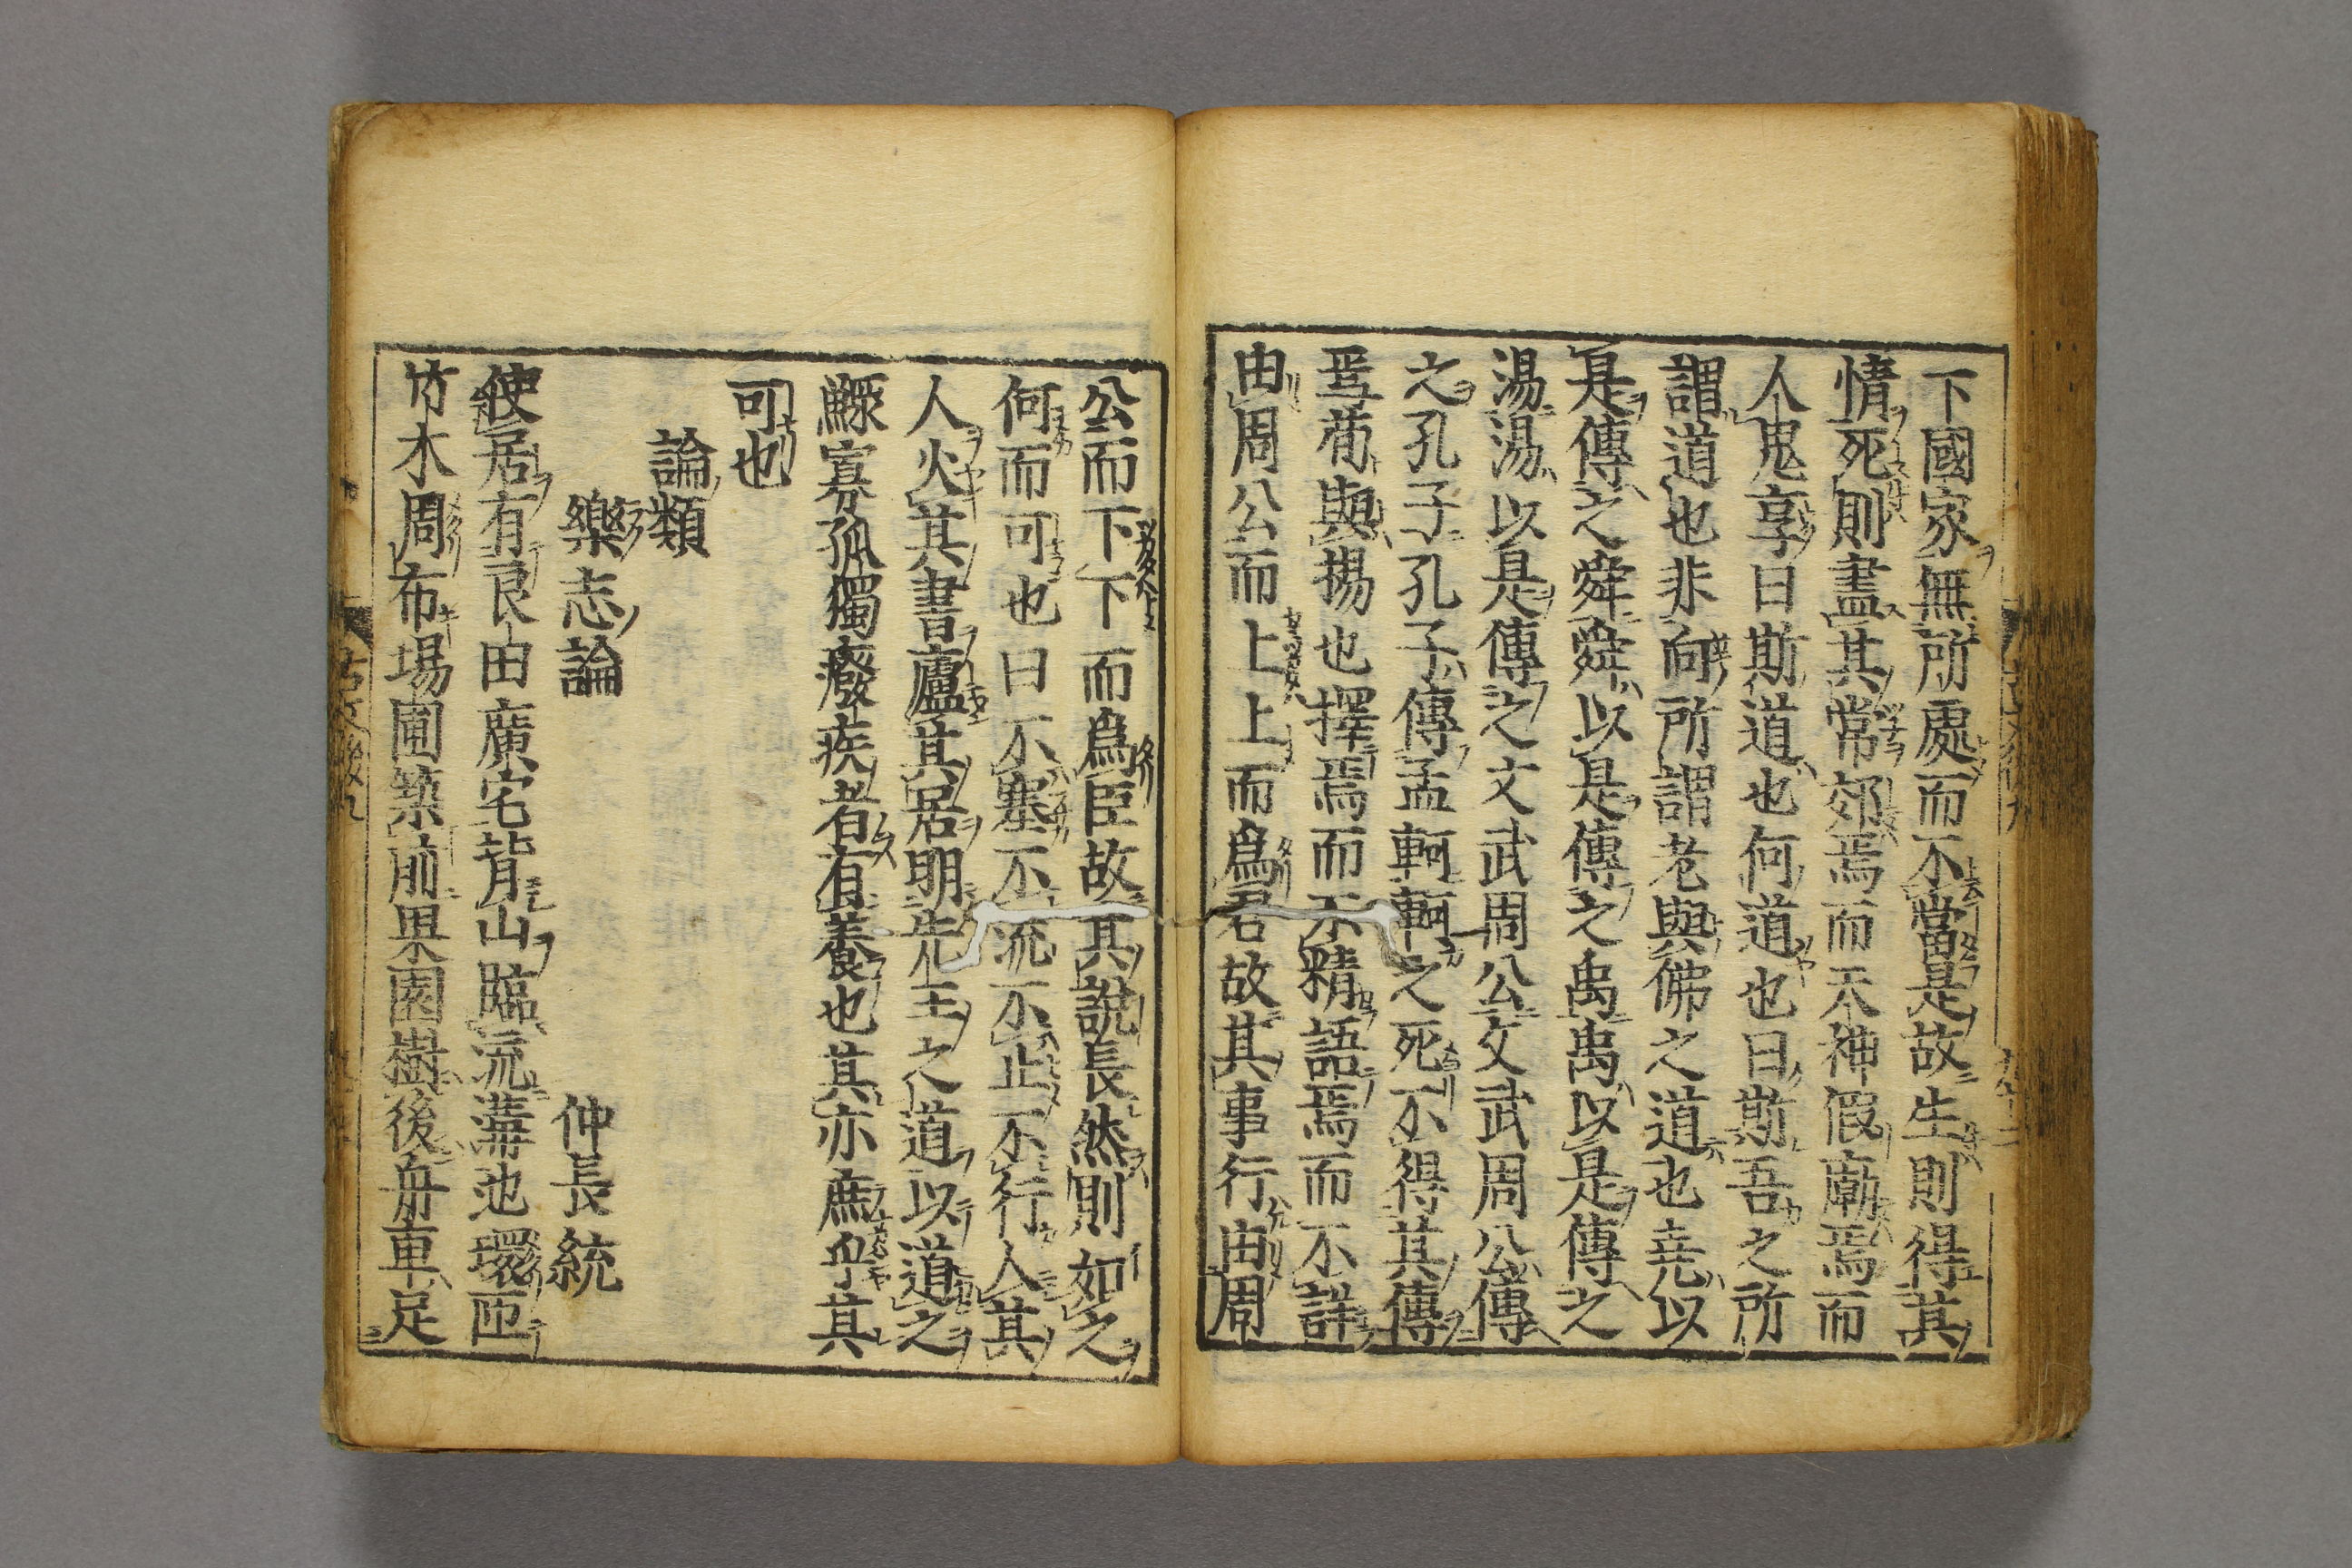 下國家無所處而不當是故生則得其
情死則盡其常郊焉而天神假廟焉而
人鬼享曰斯道也何道也曰斯吾之所
謂道也非向所謂老與佛之道也堯以
是傳之舜舜以是傳之禹禹以是傳之
湯湯以是傳之文武周公文武周公傳
之孔子孔子傳孟軻軻之死不得其傳
焉荀與揚也擇焉而不精語焉而不詳
由周公而上上而爲君故其事行由周
公而下下而爲臣故其說長然則如之
何而可也曰不塞不流不止不行人其
人火其書廬其居明先王之道以道之
鰥寡孤獨癈疾者有養也其亦庶乎其
可也
論類
樂志論 仲長統
使居有良田廣宅背山臨流溝池環匝
竹木周布場圃築前果園樹後舟車足